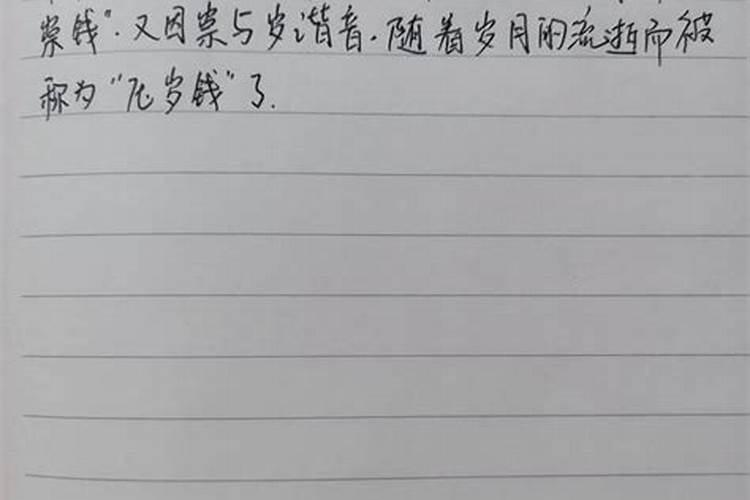 祟钱"。又因祟与岁谐音.随着岁月的流逝而被
称为"压岁钱"了.